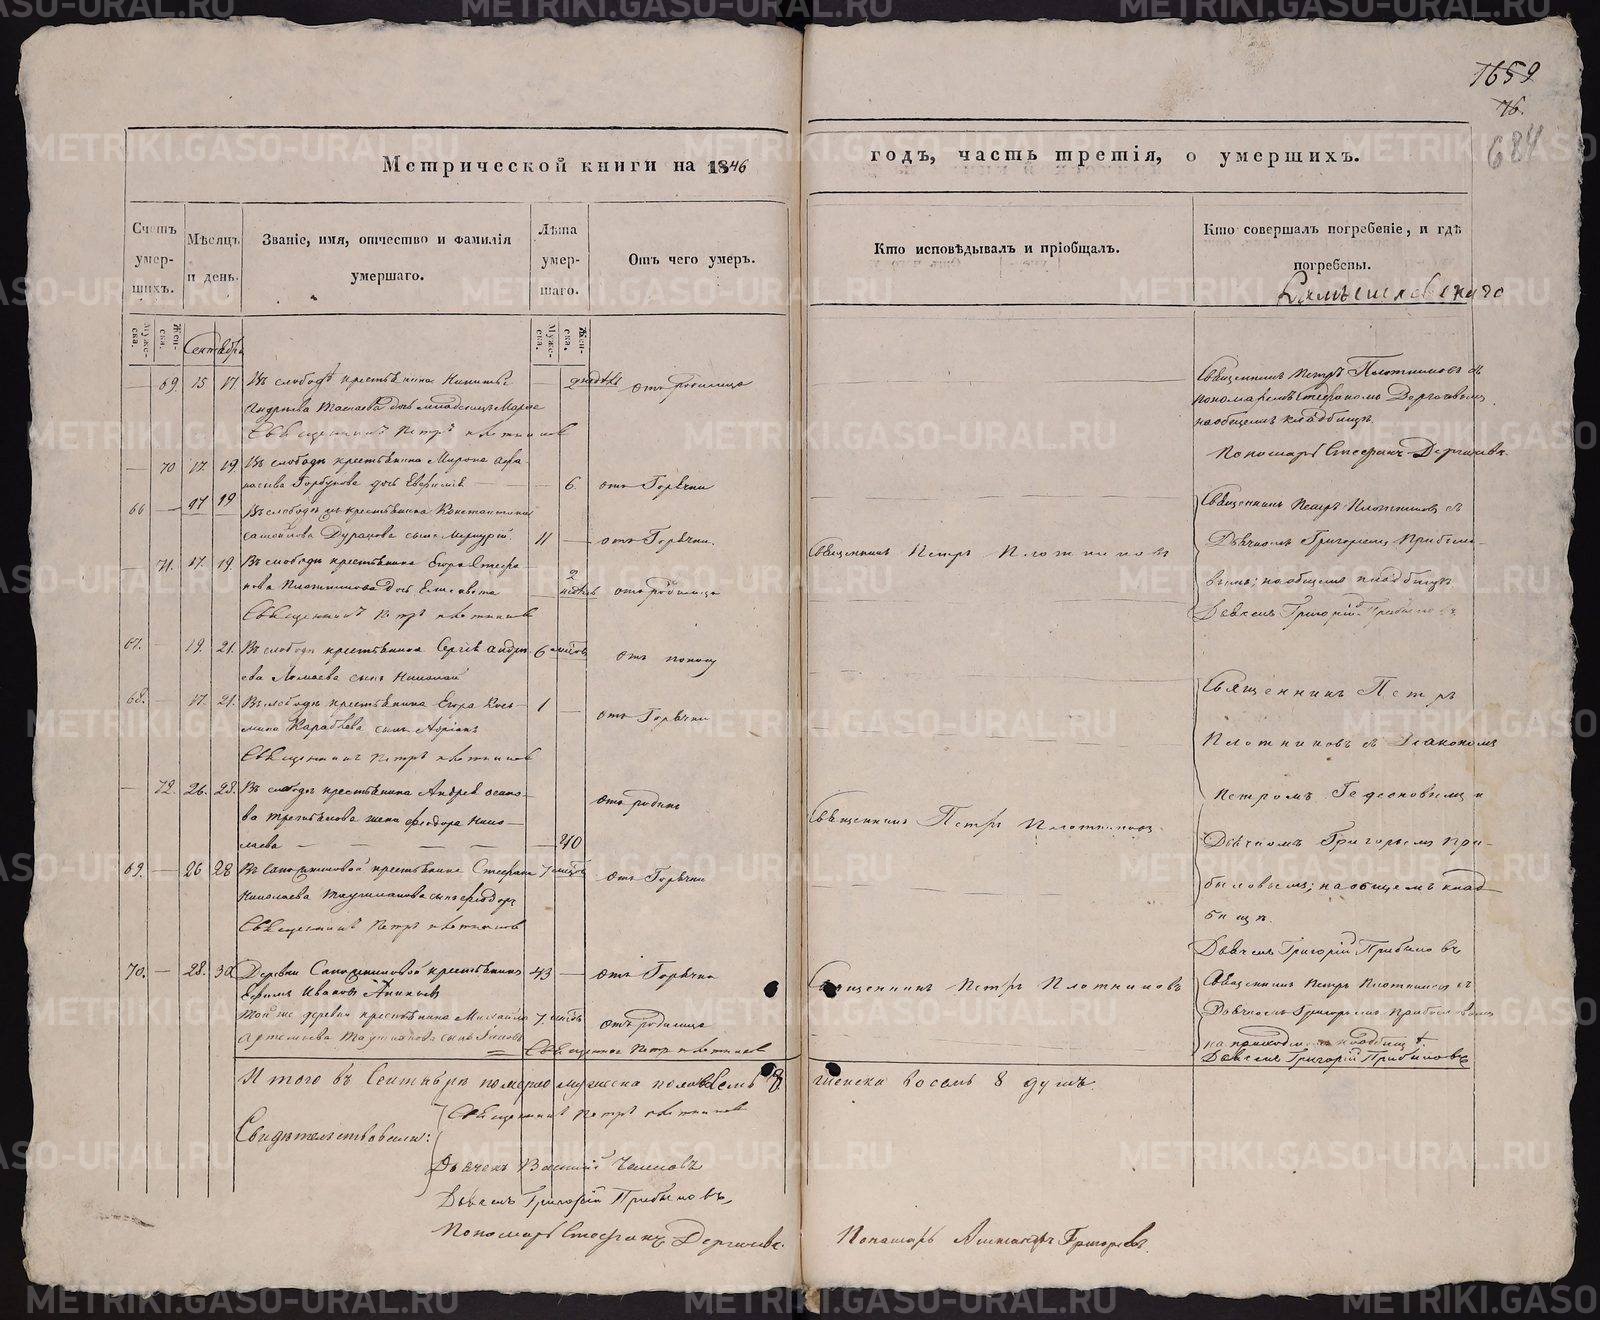 1659
76.
684
Метрической книги на 1846
годъ, часть третія, о умершихъ.
Счетъ умер-шихъ.
Мѣсяцъ и день.
Званіе, имя, отчество и фамилія умершаго.
Лѣта умер-шаго.
Отъ чего умеръ.
Кто исповѣдывалъ и пріобщалъ.
Кто совершалъ погребеніе, и гдѣ погребены.
Муже-ска.
Жен-ска.
Муже-ска.
Жен-ска.
Сентябрь
— 69. 15 17 Въ слободѣ крестьянина Никиты
отъ родимца
дочь младенецъ Марѳа
Священникъ Петръ Плотниковъ
Священникъ Петръ Плотниковъ съ
пономаремъ Стефаномъ
на общемъ кладбищѣ.
Пономарь Стефанъ
— 70 17. 19. Въ слободѣ крестьянина Мирона Афа-
насьева Горбунова дочь Евфимія — 6. отъ Горячки
66 — 17 19 Въ слободѣ крестьянина Константина
сынъ Меркурій. 11 — отъ Горячки.
— 71. 17 19. Въ слободѣ крестьянина Егора Стефа-
нова Плотникова дочь Елисавета 2 недѣль отъ родимца
Священникъ Петръ Плотниковъ
Священникъ Петръ Плотниковъ
Священникъ Петръ Плотниковъ съ
Дьячкомъ Григорьемъ Прибыло-
вымъ; на общемъ кладбищѣ
Дьячекъ Григорій Прибыловъ
67. — 19. 21. Въ слободѣ крестьянина Сергѣя Андре-
ева сынъ Николай 6 отъ поносу
68. — 17. 21. Въ слободѣ крестьянина Егора Козь-
мина сынъ Адріанъ 1 — отъ Горячки
Священникъ Петръ Плотниковъ
Священникъ Петръ
Плотниковъ съ Діакономъ
Петромъ и
Дьячкомъ Григорьемъ При-
быловымъ; на общемъ клад-
бищѣ.
Дьячекъ Григорій Прибыловъ
— 72. 26. 28. Въ слободѣ крестьянина Андрея Осипо-
ва жена Феодора Нико-
лаева — — — — — 40 отъ родинъ
Священникъ Петръ Плотниковъ.
69. — 26 28 крестьянина Стефана 7 отъ Горячки
Николаева сынъ Феодоръ
Священникъ Петръ Плотниковъ
70. — 28. 30 Деревни Сапожниковой крестьянинъ 43 — отъ Горячки
Ефимъ Ивановъ
Священникъ Петръ Плотниковъ
Той же деревни крестьянина Михаила 7. отъ родимца
Артемьева
Священникъ Петръ Плотниковъ
Священникъ Петръ Плотниковъ съ
Дьячкомъ Григорьемъ Прибыловымъ
на приходскомъ кладбищѣ.
Дьячекъ Григорій Прибыловъ
Итого въ Сентябрѣ померло мужеска пола 8 женска восемь 8 душъ.
Свидѣтельствовали:
Священникъ Петръ Плотниковъ
Дьячекъ Василій
Дьячекъ Григорій Прибыловъ,
Пономарь Стефанъ
Пономарь Александръ Григорьевъ.
METRIKI.GASO-URAL.RU